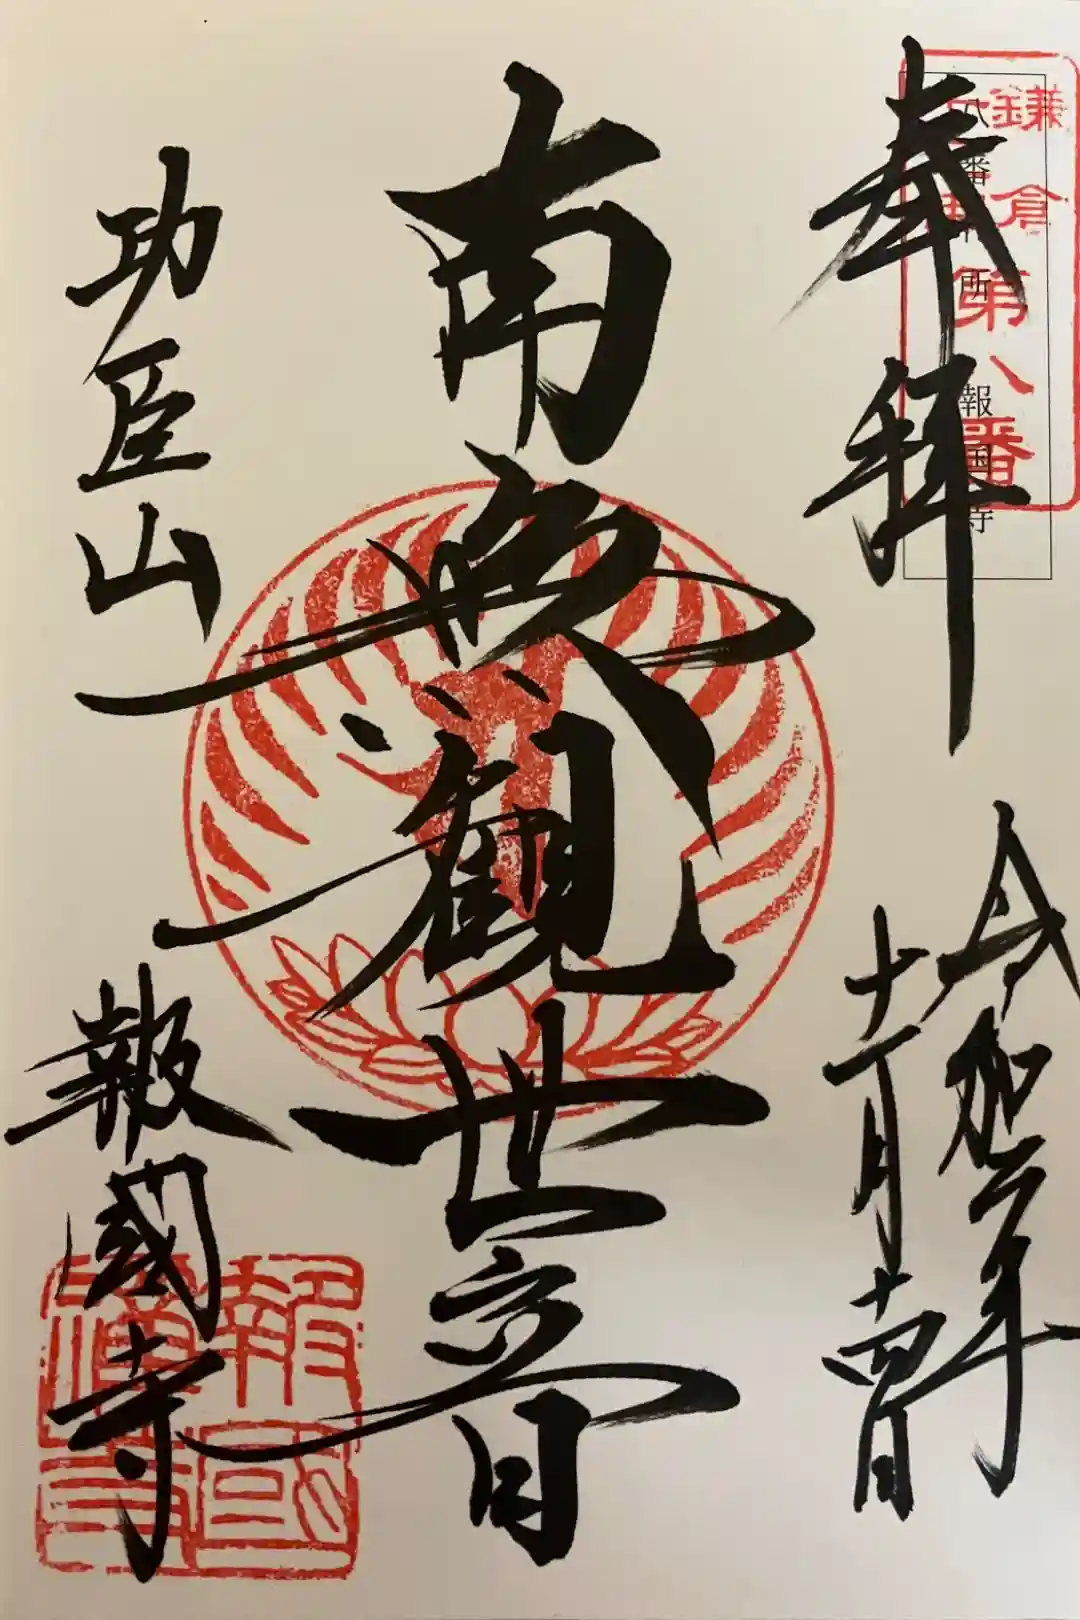 奉拝
八番札所　報国寺
鎌倉
第八番
令和二年
十一月十四日
南無観世音
功臣山
報國寺
報國禅寺